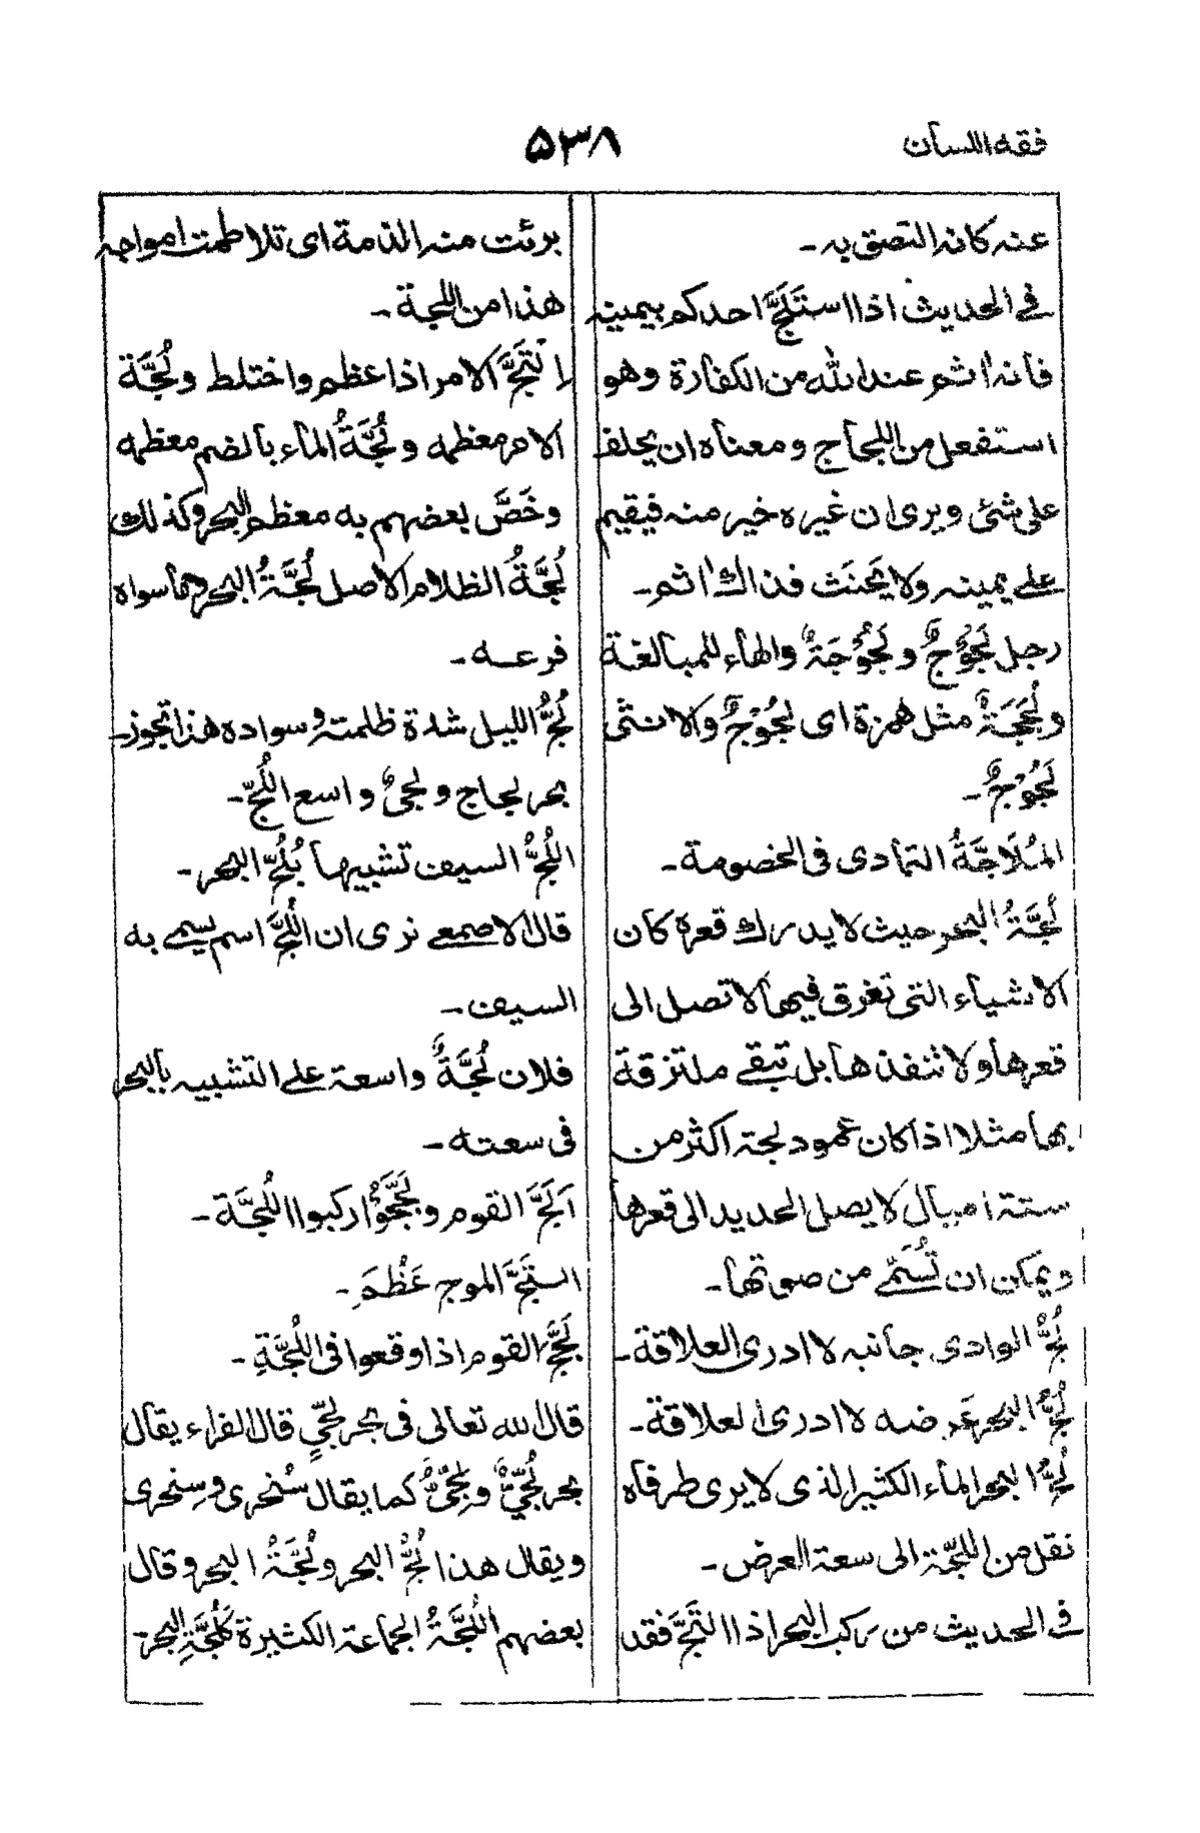 فقه اللسان
۵۳۸
عنه كانه التصق به ۔
فی الحدیث اذا استَلَجَّ احدكم بیمینه
فانه اٰثم عند الله من الكفارة وهو
استفعل من اللجاج ومعناه ان یحلف
علی شئ ویری ان غیره خیر منه فیقیم
علی یمینه ولا یَحنَث فذاك اٰثم ۔
رجل لَجُوْجٌ و لَجُوْجَةٌ والهاء للمبالغة
ولُجَجَةٌ مثل همزة ای لَجُوْجٌ والانثی
لَجُوْجٌ ۔
المُلَاجَّةُ التمادی فی الخصومة ۔
لُجَّةُ البحر حیث لا یدرك قعره كان
الاشیاء التی تغرق فیها لا تصل الی
قعرها ولا تنفذها بل تبقی ملتزقة
بها مثلا اذا كان عمود لجة اكثر من
ستة امیال لا یصل الحدید الی قعرها
ویمكن ان تُسَمّٰی من صوتها ۔
لُجُّ الوادی جانبه لا ادری العلاقة ۔
لُجُّ البحر عَرضه لا ادری العلاقة ۔
لُجُّ البحر الماء الكثیر الذی لا یری طرفاه
نقل من اللجّة الی سعة العرض ۔
فی الحدیث من ركب البحر اذا التَجَّ فقد
برئت منه الذمة ای تلاطمت امواجه
هذا من اللجة ۔
اِلْتَجَّ الامر اذا عظم واختلط ولُجَّة
الامر معظمه ولُجَّةُ الماء بالضم معظمه
وخَصَّ بعضهم به معظم البحر وكذلك
لُجَّةُ الظلام الاصل لُجَّةُ البحر وما سواه
فرعه ۔
لُجُّ اللیل شدة ظلمته وسواده هذا تجوز ۔
بحر لجاج ولجیٌ واسع اللُجّ ۔
اللُجُّ السیف تشبیها بُلُجِّ البحر ۔
قال الاصمعی نری ان اللُجَّ اسم یسمی به
السیف ۔
فلان لُجَّةٌ واسعة علی التشبیه بالبحر
فی سعته ۔
اَلَجَّ القوم ولَجَّجُوْا ركبوا اللُجَّة ۔
التَجَّ الموج عَظُمَ ۔
لَجَّجَ القوم اذا وقعوا فی اللُجَّةِ ۔
قال الله تعالی فی بحر لجِّیٍ قال الفراء یقال
بحر لُجِّیٌّ ولِجِّیٌّ كما یقال سُخری وسِخری
ویقال هذا لُجُّ البحر ولُجَّةُ البحر وقال
بعضهم اللُجَّةُ الجماعة الكثیرة كَلُجَّةِ البحر